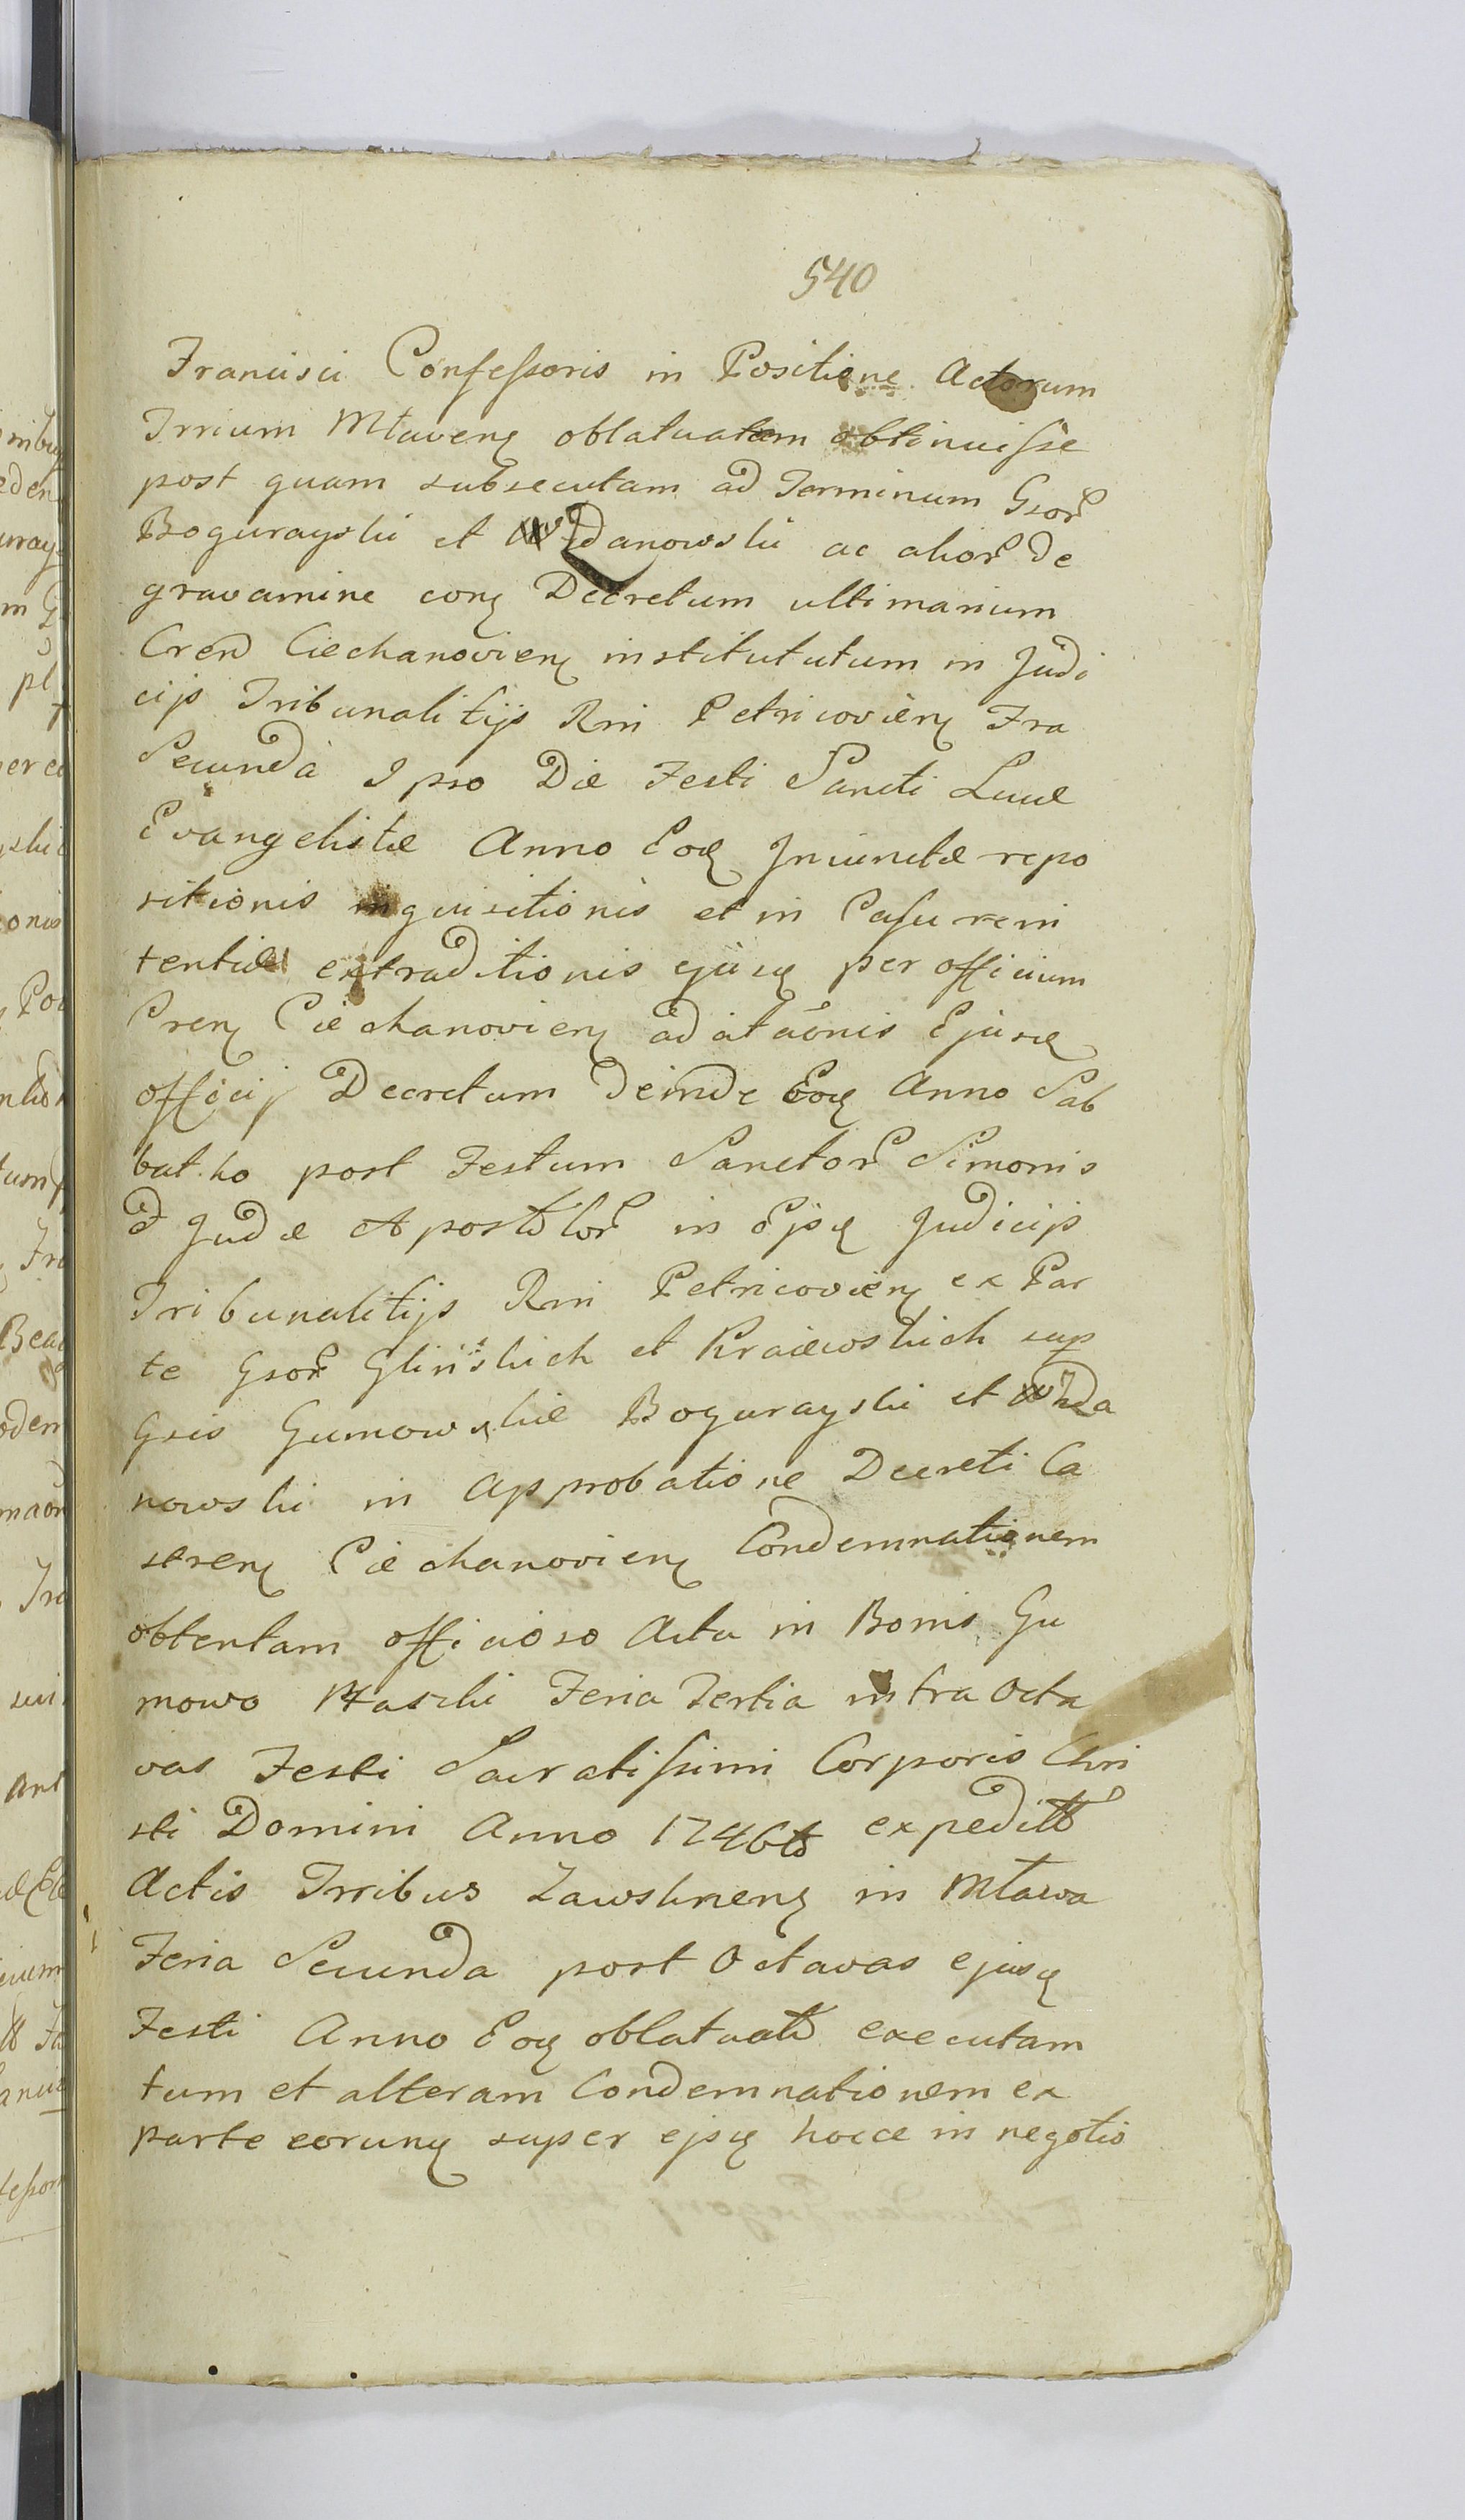 540
Francisci Confessoris in Positione Actorum
Trrium Mlaveng oblatuatam obtinuisse
post quam subsecutam ad Terminum Gsor
Bogurayski et Wizdanowski ac alior de
gravamine cong Decretum ultimarium
Cren Ciechanovien institututum in Judi
cijs Tribunalitijs Rni Petricovien Fra
Secunda Ipso Die Festi Sancti Lucæ
Evangelistæ Anno Eoq Jniunctæ repo
sitionis inquisitionis et in Casu reni
tentiæ extraditionis ejusq per officium
Cren Ciechanovien ad citaõnis Ejusq
officij Decretum deinde Eoq Anno Sab
batho post Festum Sanctor Simonis
& Judæ Apostolor in Ejsq Judicijs
Tribunalitijs Rni Petricovien ex Par
te Gsor Glinskich et Kraiewskich sup
Gsis Gumowskie Bogurayski et Wizda
nowski in Approbatione Decreti Ca
stren Ciechanovien Condemnationem
obtentam officioso Actu in Bonis Gu
mowo Ptaszki Feria Tertia intra Octa
vas Festi Sacratissimi Corporis Chri
sti Domini Anno 1746to expedito
Actis Trribus Zawskrnen in Mława
Feria Secunda post Octavas ejusq
Festi Anno Eoq oblatuato executam
tum et alteram Condemnationem ex
parte eorunq super ejsq hocce in negotio